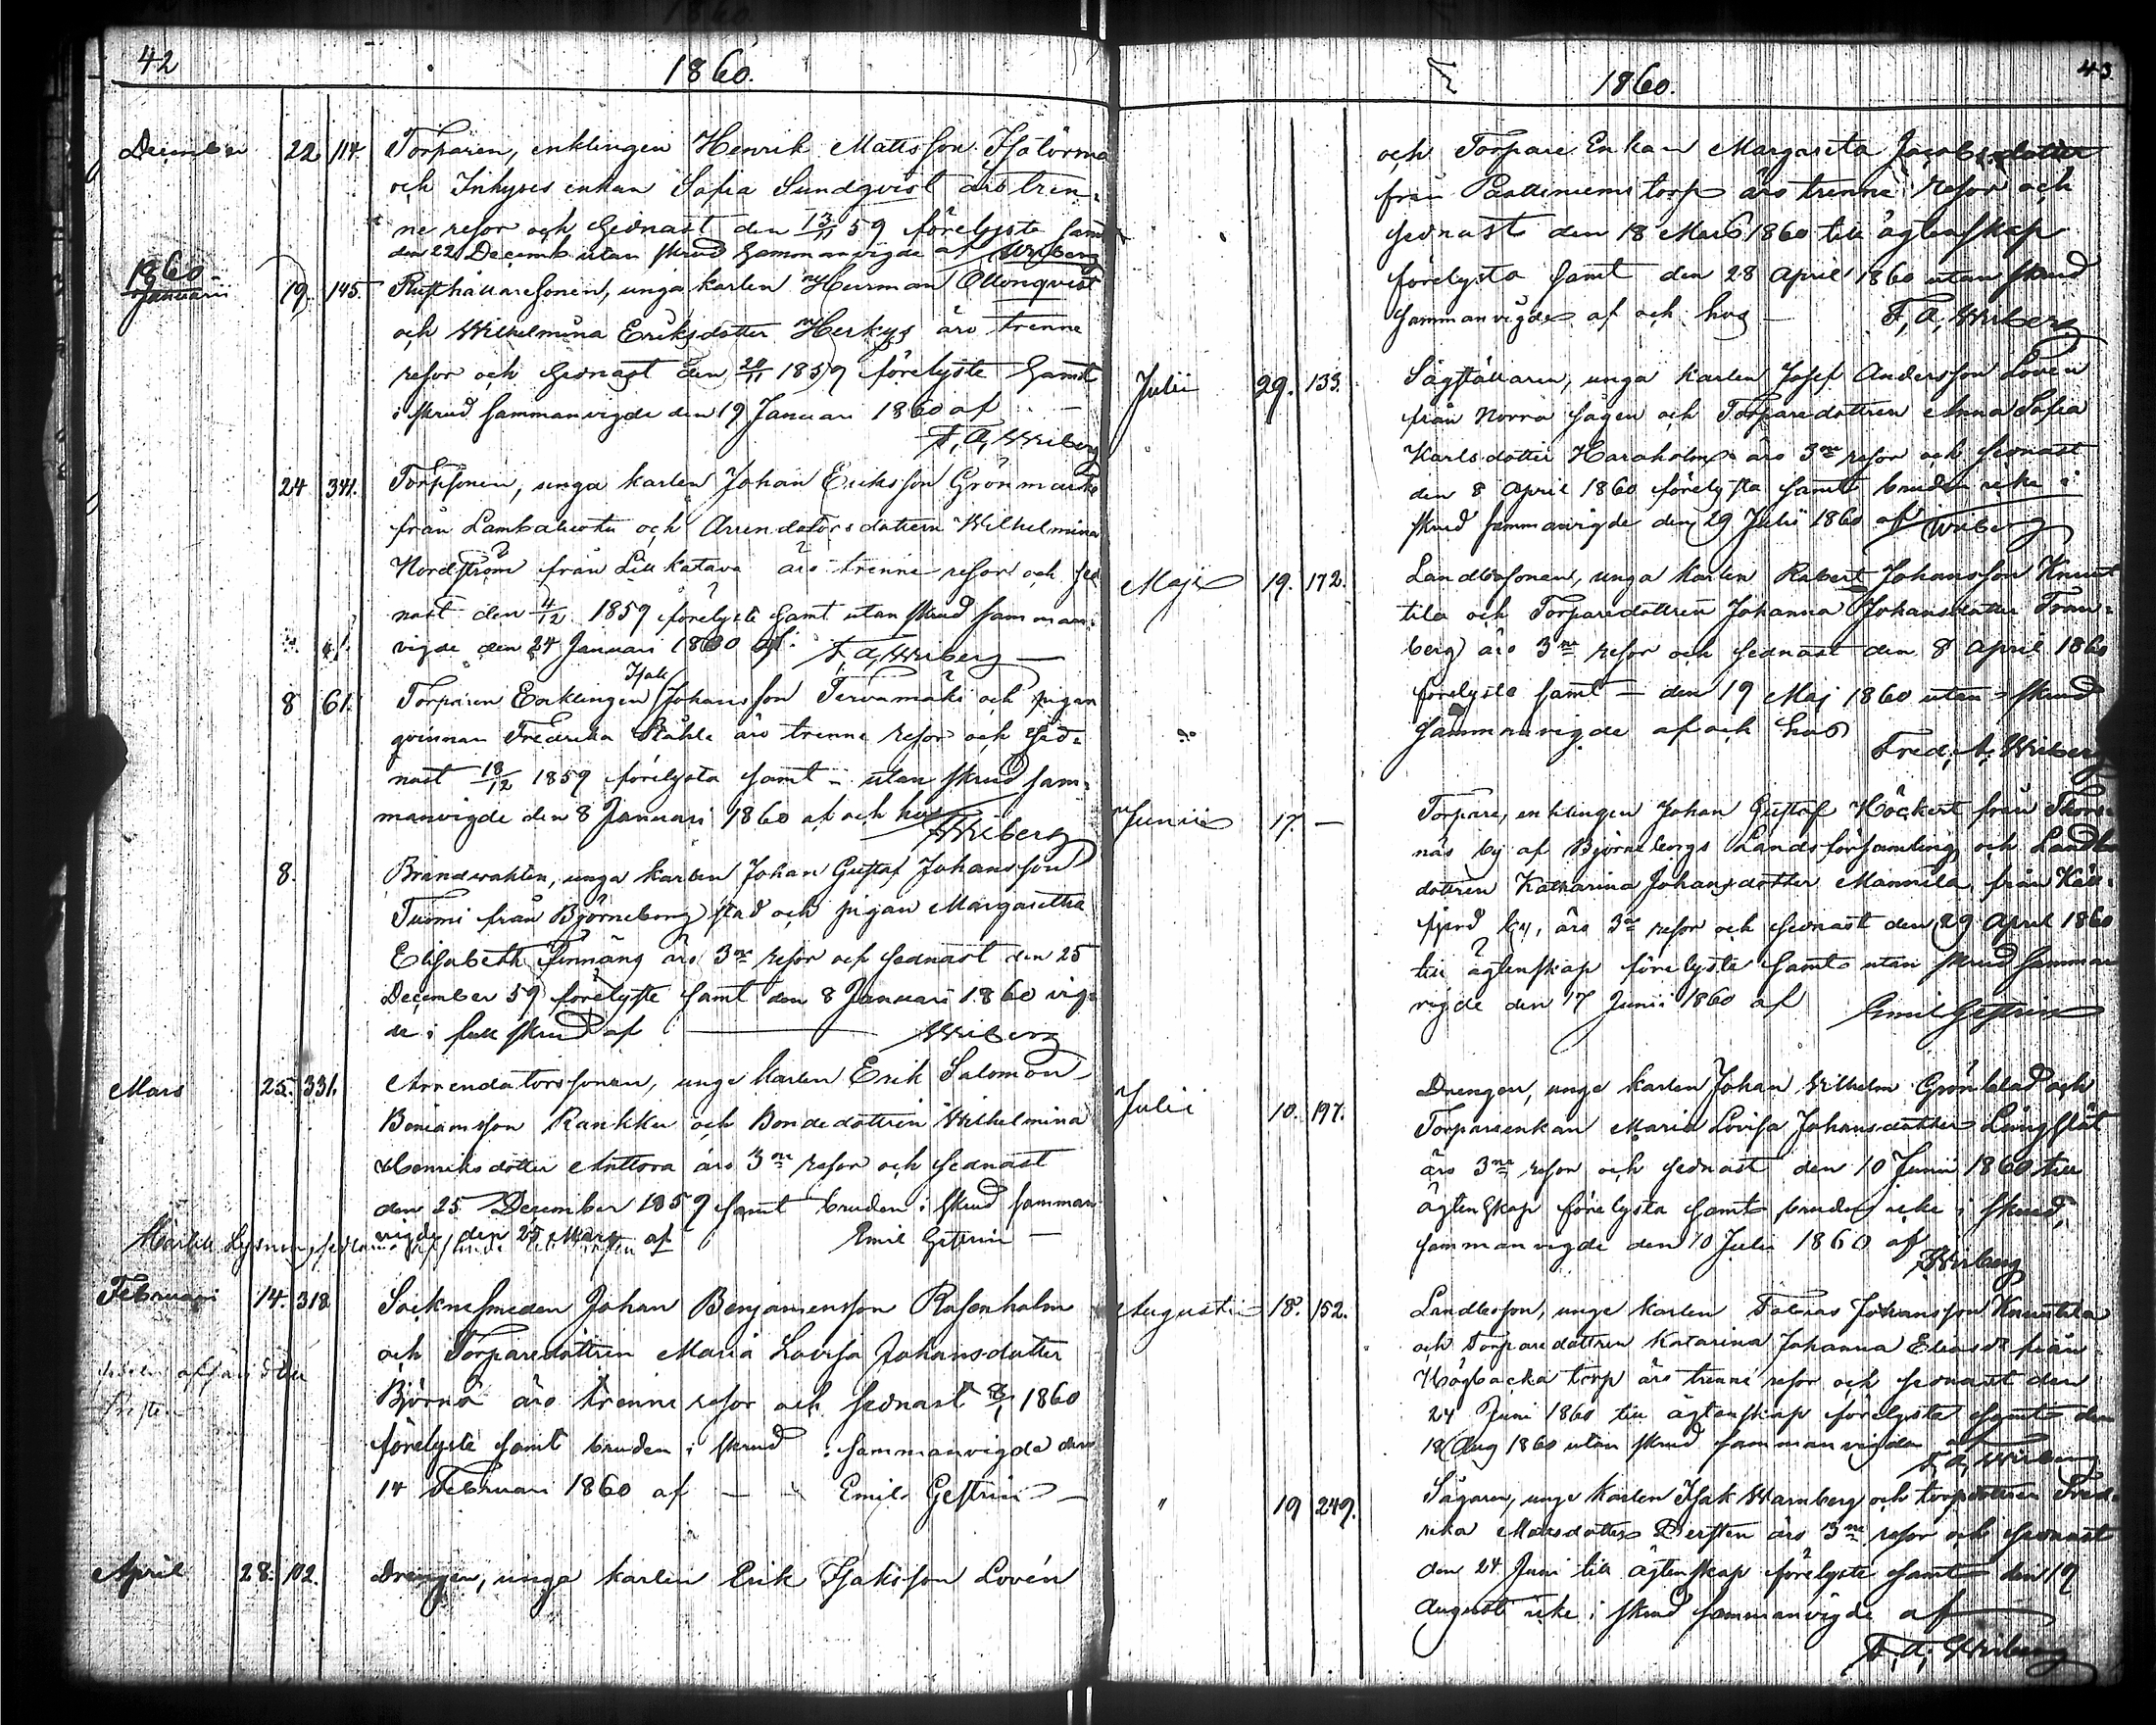 42
1860.
December 22 114. Torparen, enklingen Henrik Mattsson Isotorma
och Inhyses enkan Sofia Sundqvist äro tren-
ne resor och sednast den 13/11 59 förelysta samt
den 22 Decemb utan skrud sammanvigde af Wriberg
1860
Januarii 19. 145. Rusthållaresonen, unga karlen Herrman Ollonqvist
och Wilhelmina Eriksdotter Herkys äro trenne
resor och sednast den 20/11 1859 förelyste samt
i skrud sammanvigde den 19 Januari 1860 af
F. A. Wriberg
24 341. Torpsonen, unga karlen Johan Eriksson Grönmark
från och Arrendatorsdottren Wilhelmina
Nordström från äro trenne resor och sed
nast den 4/12 1859 förelyste samt utan skrud samman-
vigde den 24 Januari 1860 af. F. A. Wriberg
8 61. Torparen Enklingen Isak Johansson Tervamäki och pigan
qvinnan Fredrika Ståhle äro trenne resor och sed-
nast 18/12 1859 förelysta samt utan skrud sam-
manvigde den 8 Januari 1860 af och hos Wriberg
8. Brandwakten, unga karlen Johan Gustaf Johansson
Tuomi från Björneborg stad och pigan Margaretha
Elisabeth Finnäng äro 3ne resor och sednast den 25
December 59 förelyste samt den 8 Januari 1860 vig-
de i full skrud af Wriberg
Mars 25. 331. Arrendatorssonen, unge karlen Erik Salomon
Beniamsson Rankku och Bondedottren Wilhelmina
Henriksdotter Anttora äro 3ne resor och sednast
den 25 December 1859 samt bruden i skrud samman
vigde den 25 Mars af Emil Gestrin
Februari 14. 318 Sockne smeden Johan Benjaminsson Rosenholm
och Torparedottren Maria Lovisa Johansdotter
Björnå äro trenne resor och sednast 1860
förelyste samt bruden i skrud sammanvigde den
14 Februari 1860 af Emil Gestrin
April 28. 102. Drengen, unga karlen Erik Isaksson Lovén
43
1860.
och Torpare Enkan Margareta Jacobsdotter
från torp äro trenne resor och
sednast den 18 Mars 1860 till ägtenskap
förelysta samt den 28 April 1860 utan skrud
sammanvigde af och hos F. A. Wriberg
Julii 29. 133. Sågställaren, unga karlen Josef Andersson Lovén
från Norra sågen och Torparedottren Anna Sofia
Karlsdotter Haraholm äro 3ne resor och sednast
den 8 April 1860 förelysta samt bruden icke i
skrud sammanvigde den 29 Julii 1860 af Wriberg
Maji 19. 172. Landbosonen, unga karlen Robert Johansson Knuut
tila och Torparedottren Johanna Johansdotter Tran-
berg äro 3ne resor och sednast den 8 April 1860
förelysta samt den 19 Maj 1860 utan skrud
sammanvigde af och hos
Fred. A. Wriberg
Junii 17. — Torpare, enklingen Johan Gustaf Höckert från Thors-
näs by af Björneborgs Landsförsamling och Landbo
dottren Katharina Johansdotter Mannila från Käll-
fjerd by, äro 3ne resor och sednast den 29 April 1860
till ägtenskap förelyste samt utan skrud samman
vigde den 17 Junii 1860 af Emil Gestrin
Julii 10. 197. Drengen, unge karlen Johan Wilhelm Grönblad och
Torpareenkan Maria Lovisa Johansdotter Långslät
äro 3ne resor och sednast den 10 Junii 1860 till
ägtenskap förelysta samt bruden icke i skrud,
sammanvigde den 10 Julii 1860 af
Wriberg
Augusti 18. 152. Landboson, unge karlen Tobias Johansson Knuutila
och Torparedottren Katarina Johanna Eliasdr från
Högbacka torp äro trenne resor och sednast den
24 Juni 1860 till ägtenskap förelysta samt den
18 Aug 1860 utan skrud sammanvigde af
F. A. Wriberg
" 19 249. Sågaren, unge karlen Isak Warnberg och torpdottren Fred-
rika Matsdotter äro 3ne resor och sednast
den 24 Juni till ägtenskap förelyste samt den 19
Augusti icke i skrud sammanvigde af
F. A. Wriberg